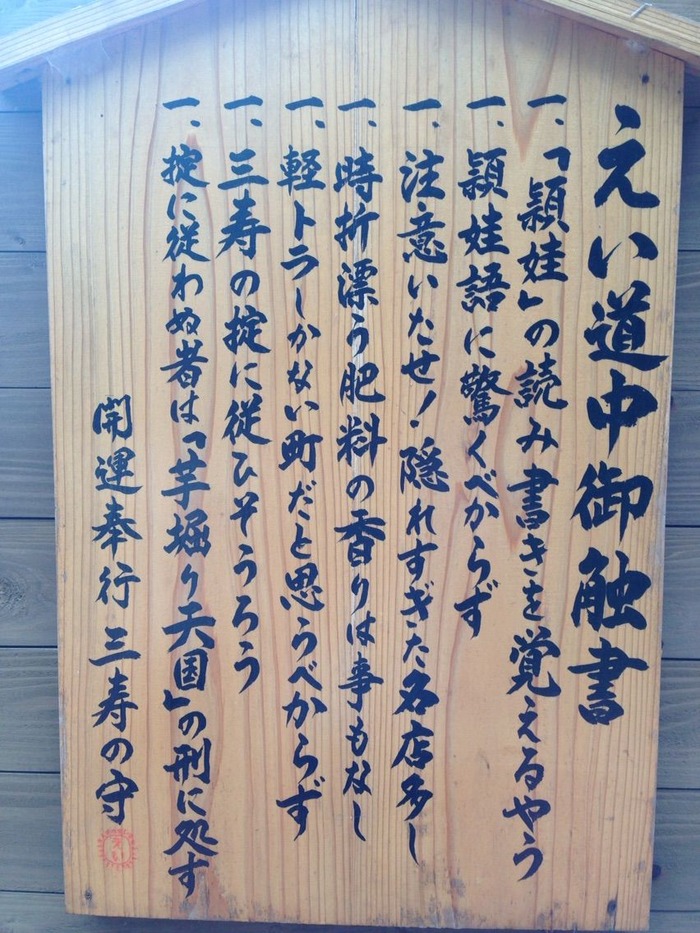 えい道中御触書
一、「頴娃」の読み書きを覚えるやう
一、頴娃語に驚くべからず
一、注意いたせ!隠れすぎた名店多し
一、時折漂う肥料の香りは事もなし
一、軽トラしかない町だと思うべからず
一、三寿の掟に従ひそうろう
一、掟に従わぬ者は「芋堀り天国」の刑に処す
開運奉行 三寿の守
えい